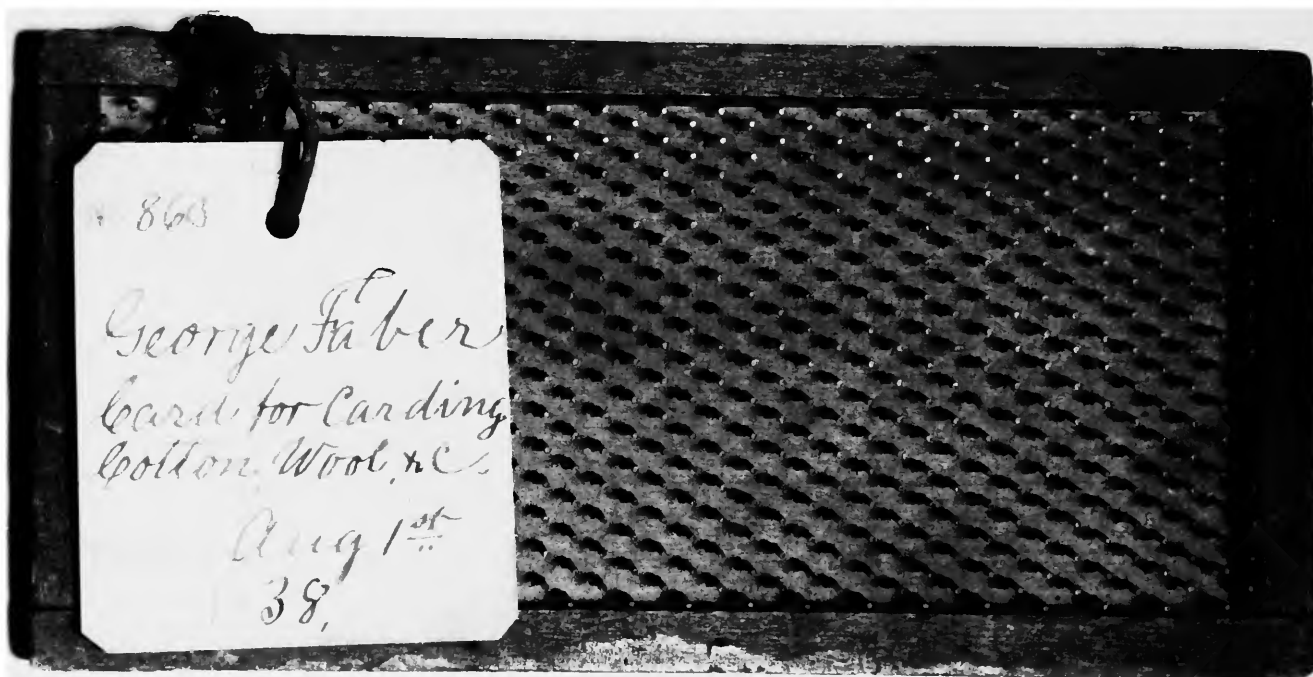 George Faber
Card for Carding
Cotton, Wool, &c.
Aug 1st
38,